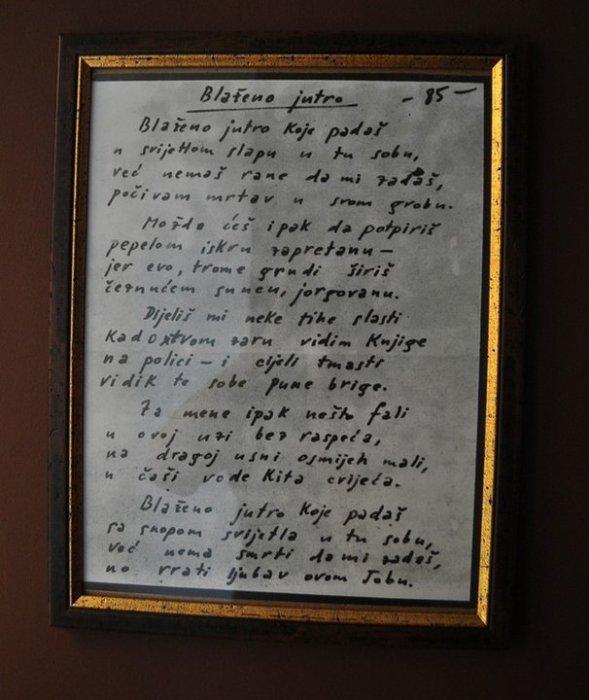 Blaženo jutro - 85 -
Blaženo jutro koje padaš
u svijetlom slapu u tu sobu,
već nemaš rane da mi zadaš,
počivam mrtav u svom grobu.
Možda ćeš ipak da potpiriš
pepelom iskru zapretanu -
jer evo, trome grudi širiš
čeznućem suncu, jorgovanu.
Dijeliš mi neke tihe slasti
kad oštrom zaru vidim knjige
na polici - i cijeli tmasti
vidik te sobe pune brige.
Za mene ipak nešto fali
u ovoj uzi bez raspeća,
na dragoj usni osmijeh mali,
u čaši vode kita cvijeća.
Blaženo jutro koje padaš
sa snopom svijetla u tu sobu,
već nema smrti da mi zadaš,
no vrati ljubav ovom Jobu.